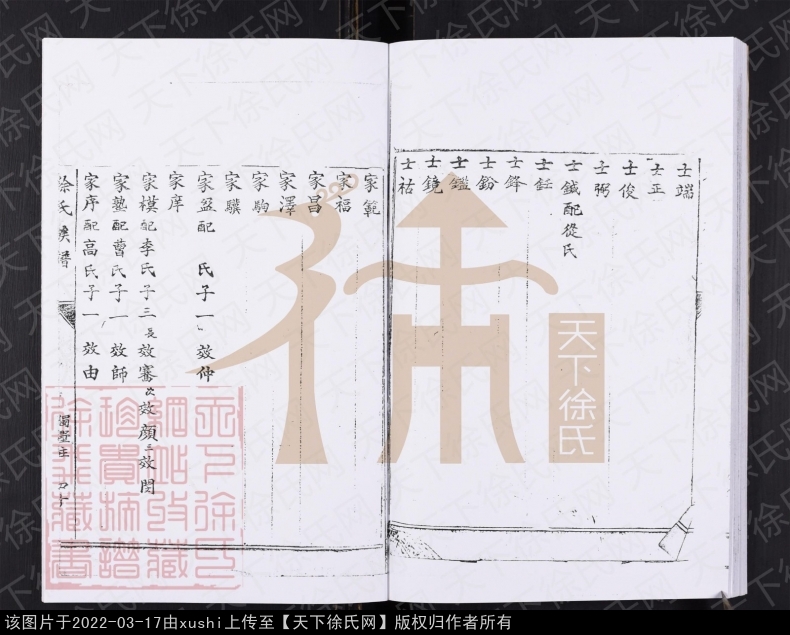 士端
士正
士俊
士弼
士鉞配從氏
士鈺
士鋒
士鈖
士鑑
士鏡
士祜
家範
家福
家昌
家澤
家駒
家驥
家盈配 氏子一 效仲
家庠
家模配李氏子三 長效審 次效顔 三效閔
家塾配曹氏子一 效師
家序配高氏子一 效由
徐氏族譜
天下徐氏
天下徐氏网
该图片于2022-03-17由xushi上传至【天下徐氏网】版权归作者所有